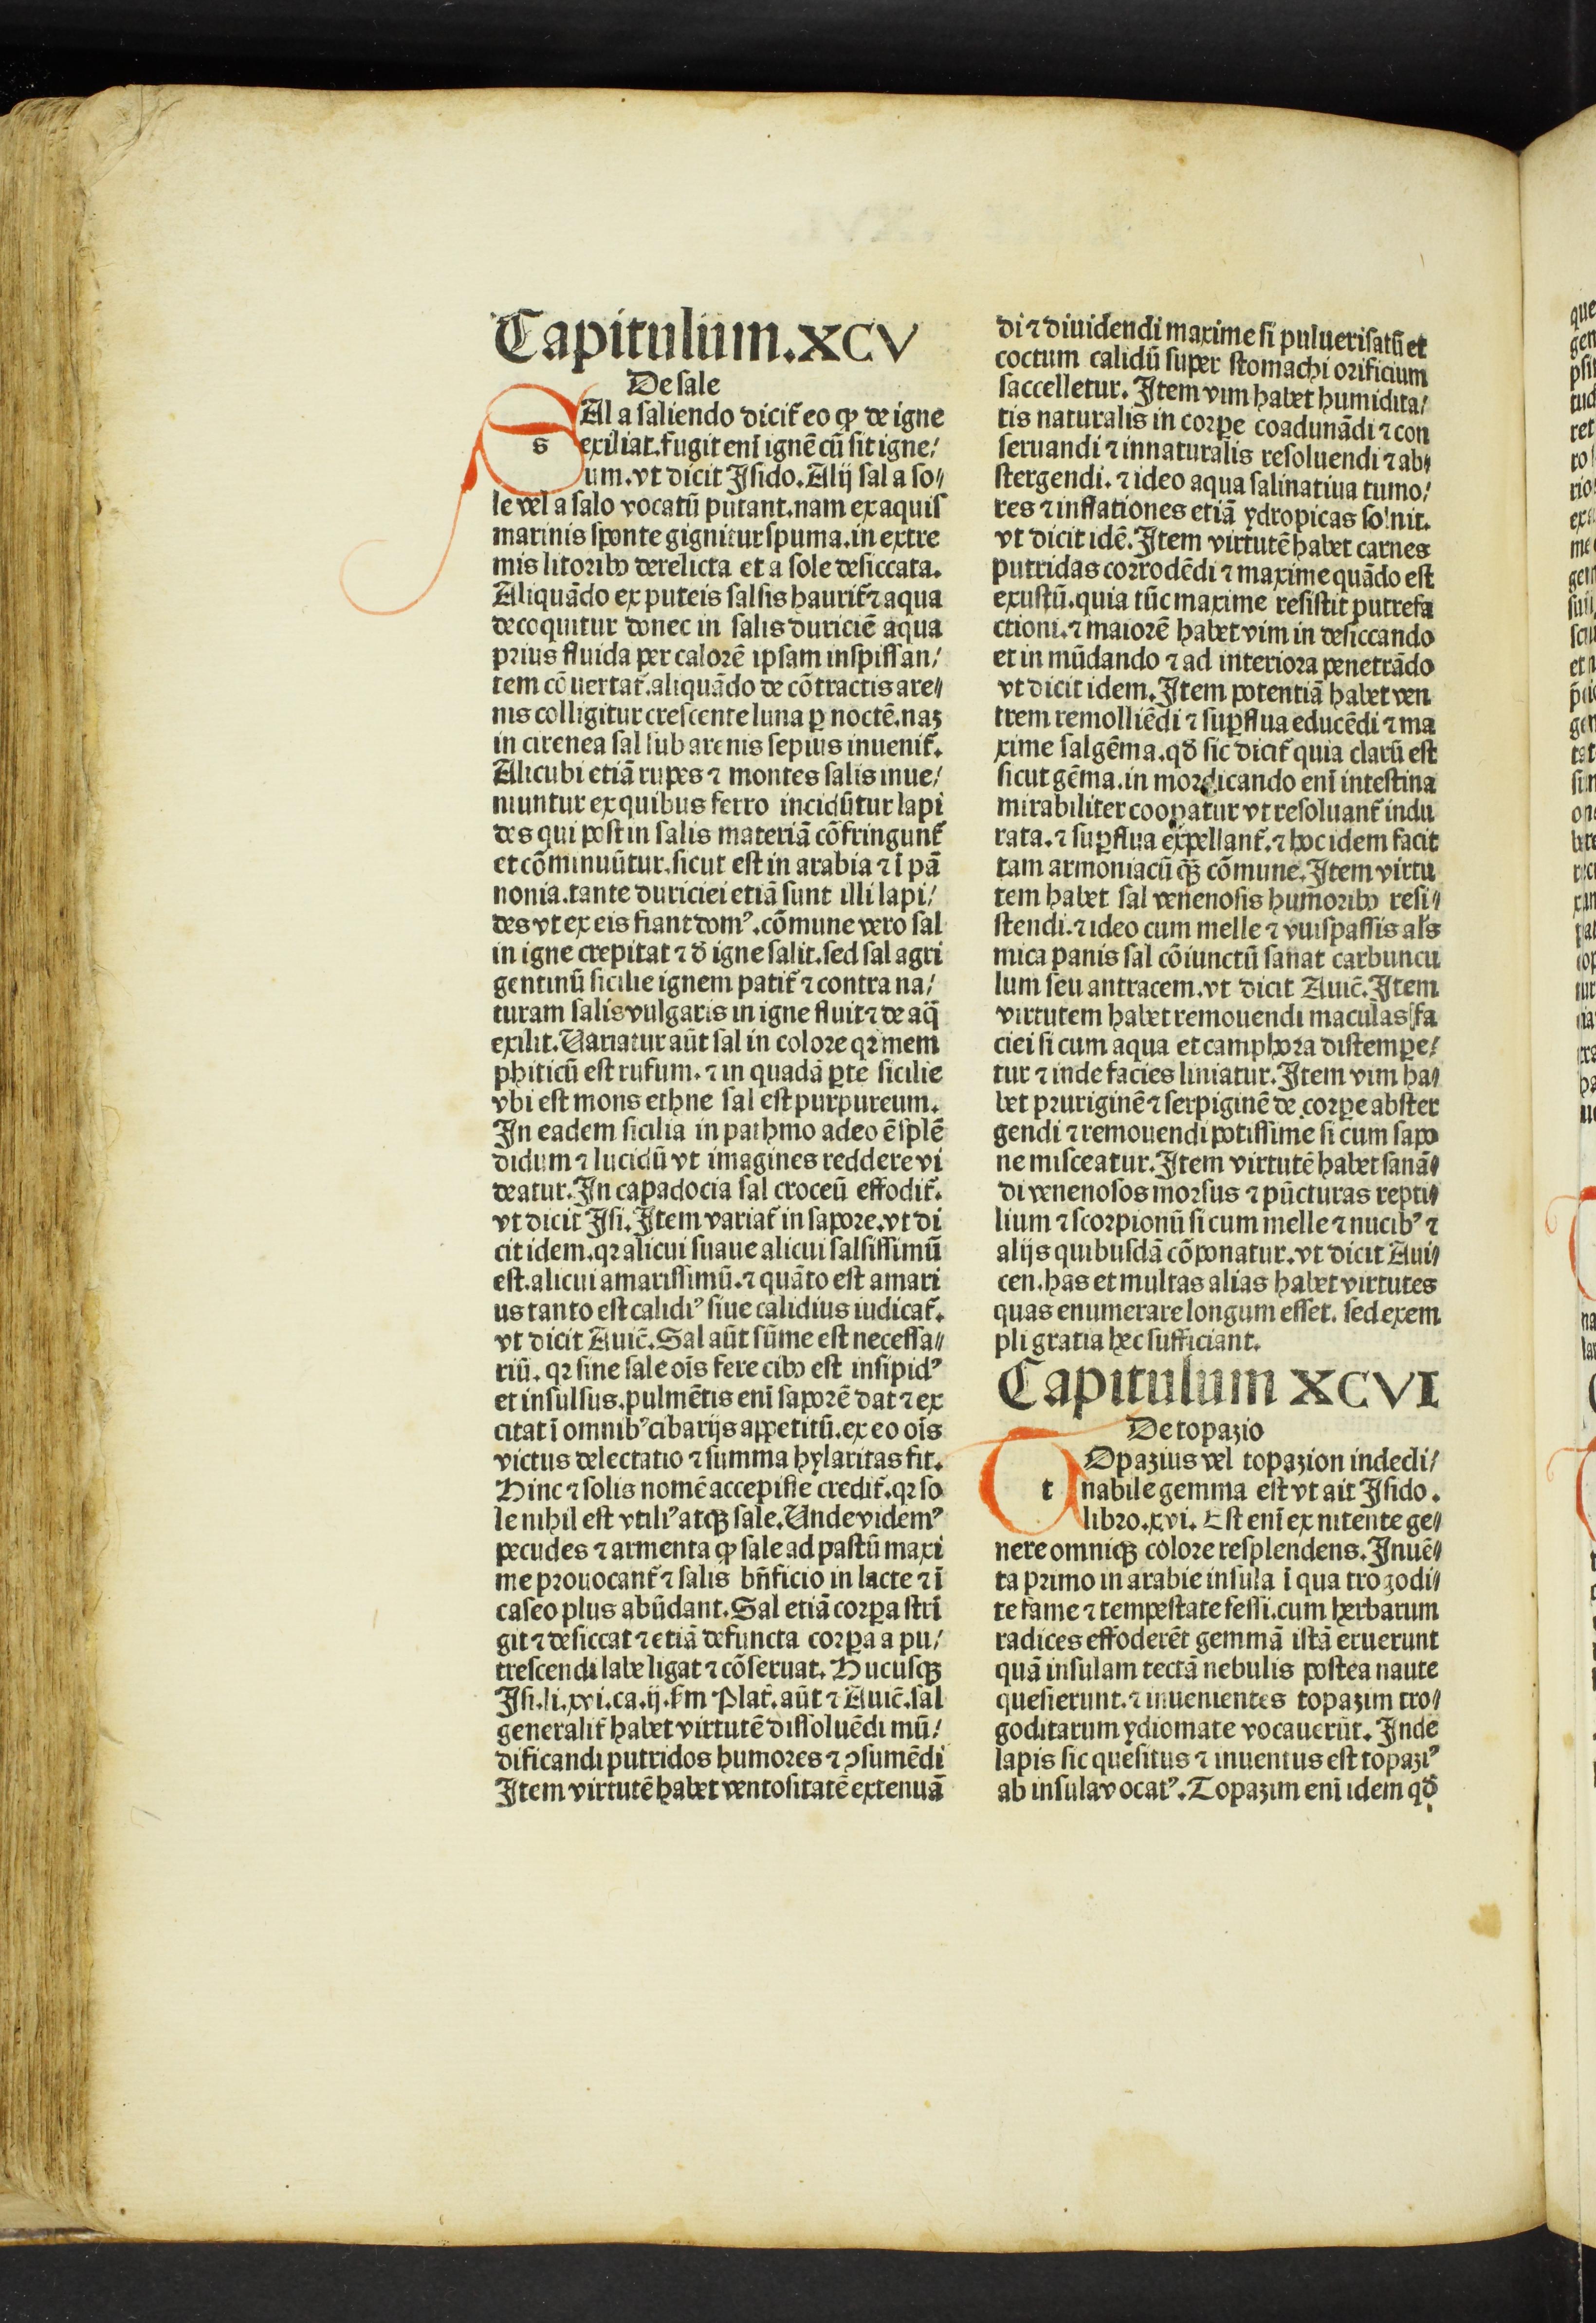 Capitulum.XCV
De sale
SAl a saliendo dicit̃ eo ꝙ de igne
exiliat.fugit eni̅ igne̅ cu̅ sit igne/
um.vt dicit Isido.Alij sal a so/
le vel a salo vocatu̅ putant.nam ex aquis
marinis sponte gignitur spuma.in extre
mis litoribꝰ derelicta et a sole desiccata.
Aliqua̅do ex puteis salsis haurit̃ ⁊ aqua
decoquitur donec in salis duricie̅ aqua
prius fluida per calore̅ ipsam inspissan/
tem co̅uertat̃.aliqua̅do de co̅tractis are/
nis colligitur crescente luna ꝑ nocte̅.naꝫ
in cirenea sal sub arenis sepius inuenit̃.
Alicubi etia̅ rupes ⁊ montes salis inue/
niuntur ex quibus ferro incidu̅tur lapi
des qui post in salis materia̅ co̅fringunt̃
et co̅minuu̅tur.sicut est in arabia ⁊ i̅ pa̅
nonia.tante duriciei etia̅ sunt illi lapi/
des vt ex eis fiant domꝰ.co̅mune vero sal
in igne crepitat ⁊ d̅ igne salit.sed sal agri
gentinu̅ sicilie ignem patit̃ ⁊ contra na/
turam salis vulgaris in igne fluit ⁊ de aq̅
exilit.Variatur au̅t sal in colore qꝛ mem
phiticu̅ est rufum.⁊ in quada̅ ꝑte sicilie
vbi est mons ethne sal est purpureum.
In eadem sicilia in pathmo adeo e̅ sple̅
didum ⁊ lucidu̅ vt imagines reddere vi
deatur.In capadocia sal croceu̅ effodit̃.
vt dicit Isi.Item variat̃ in sapore.vt di
cit idem.qꝛ alicui suaue alicui salsissimu̅
est.alicui amarissimu̅.⁊ qua̅to est amari
us tanto est calidiꝰ siue calidius iudicat̃.
vt dicit Auic̅.Sal au̅t su̅me est necessa/
riu̅.qꝛ sine sale oi̅s fere cibꝰ est insipidꝰ
et insulsus.pulme̅tis eni̅ sapore̅ dat ⁊ ex
citat i̅ omnibꝰ cibarijs appetitu̅.ex eo oi̅s
victus delectatio ⁊ summa hylaritas fit.
Hinc ⁊ solis nome̅ accepisse credit̃.qꝛ so
le nihil est vtiliꝰ atqꝫ sale.Unde videmꝰ
pecudes ⁊ armenta ꝙ sale ad pastu̅ maxi
me prouocant̃ ⁊ salis bn̅ficio in lacte ⁊ i̅
caseo plus abu̅dant.Sal etia̅ corꝑa stri̅
git ⁊ desiccat ⁊ etia̅ defuncta corꝑa a pu/
trescendi labe ligat ⁊ co̅seruat.Hucusqꝫ
Isi.li.xvi.ca.ij.ẜm Plat̃.au̅t ⁊ Auic̅.sal
generalit̃ habet virtute̅ dissolue̅di mu̅/
dificandi putridos humores ⁊ ꝯsume̅di
Item virtute̅ habet ventositate̅ extenua̅
di ⁊ diuidendi maxime si puluerisatu̅ et
coctum calidu̅ super stomachi orificium
saccelletur.Item vim habet humidita/
tis naturalis in corꝑe coaduna̅di ⁊ con
seruandi ⁊ innaturalis resoluendi ⁊ ab/
stergendi.⁊ ideo aqua salinatiua tumo/
res ⁊ inflationes etia̅ ydropicas soluit.
vt dicit ide̅.Item virtute̅ habet carnes
putridas corrode̅di ⁊ maxime qua̅do est
exustu̅.quia tu̅c maxime resistit putrefa
ctioni.⁊ maiore̅ habet vim in desiccando
et in mu̅dando ⁊ ad interiora penetra̅do
vt dicit idem.Item potentia̅ habet ven
trem remollie̅di ⁊ suꝑflua educe̅di ⁊ ma
xime salge̅ma.qd̅ sic dicit̃ quia claru̅ est
sicut ge̅ma.in mordicando eni̅ intestina
mirabiliter cooꝑatur vt resoluant̃ indu
rata.⁊ suꝑflua expellant̃.⁊ hoc idem facit
tam armoniacu̅ qꝫ co̅mune.Item virtu
tem habet sal venenosis humoribꝰ resi/
stendi.⁊ ideo cum melle ⁊ vuispassis al̅s
mica panis sal co̅iunctu̅ sanat carbuncu
lum seu antracem.vt dicit Auic̅.Item
virtutem habet remouendi maculas fa
ciei si cum aqua et camphora distempe/
tur ⁊ inde facies liniatur.Item vim ha/
bet prurigine̅ ⁊ serpigine̅ de corꝑe abster
gendi ⁊ remouendi potissime si cum sapo
ne misceatur.Item virtute̅ habet sana̅/
di venenosos morsus ⁊ pu̅cturas repti/
lium ⁊ scorpionu̅ si cum melle ⁊ nucibꝰ ⁊
alijs quibusda̅ co̅ponatur.vt dicit Aui/
cen.has et multas alias habet virtutes
quas enumerare longum esset. sed exem
pli gratia hec sufficiant.
Capitulum XCVI
De topazio
TOpazius vel topazion indecli/
nabile gemma est vt ait Isido.
libro.xvi. Est eni̅ ex nitente ge/
nere omniqꝫ colore resplendens.Inue̅/
ta primo in arabie insula i̅ qua trogodi/
te fame ⁊ tempestate fessi.cum herbarum
radices effodere̅t gemma̅ ista̅ eruerunt
qua̅ insulam tecta̅ nebulis postea naute
quesierunt.⁊ inuenientes topazim tro/
goditarum ydiomate vocaueru̅t. Inde
lapis sic quesitus ⁊ inuentus est topaziꝰ
ab insula vocatꝰ.Topazim eni̅ idem qd̅